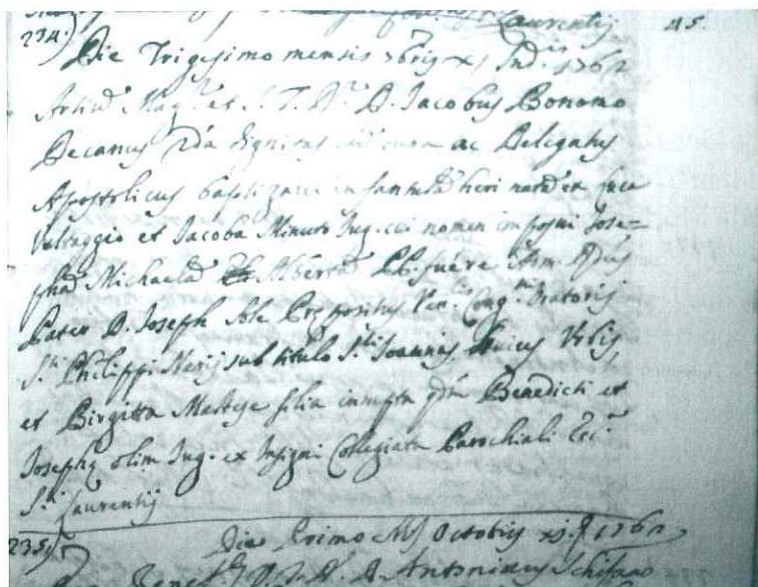 Laurentij
45.
234.
Die Trigesimo mensis 7bris XI Ind.is 1762
Artiu Mag.r et S. T. D.r D. Jacobus Bonomo
Decanus 2da dignitas cu cura ac Delegatus
Apostolicus baptizavi infantula heri nata ex
Vultaggio et Jacoba Minuto Jug. cui nomen imposui Jose=
pha Michaela Alberta PP. fuere
Pater D. Joseph Sole Prepositus Ven.lis Cong.nis Oratorij
S.ti Philippi Nerij sub titulo S.ti Joannis huius Urbis
et Birgitta Maltese filia innupta qdm Benedicti et
Josepha olim Jug. ex Insigni Collegiata Parochiali Ecc.
S.ti Laurentij
235.
Die Primo Octobris XI. 1762
D. Antoninus Schifano